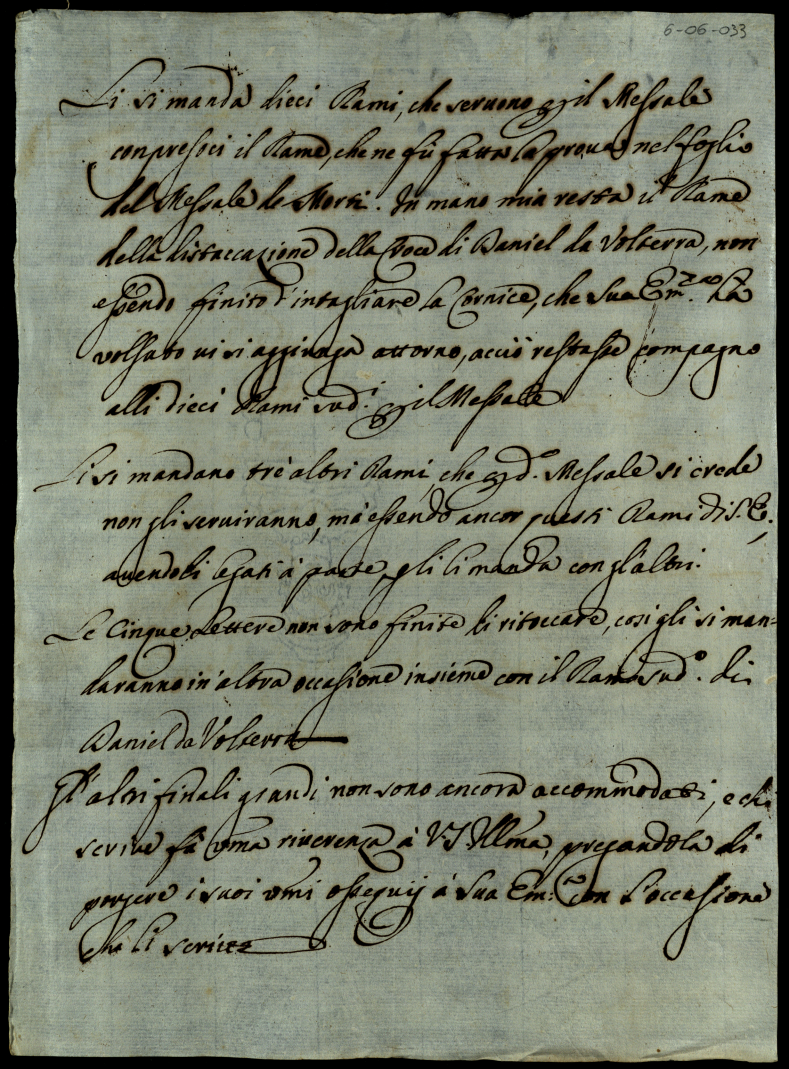 6-06-033
Li si manda dieci Rami, che seruono p il Messale
compresoci il Rame, che ne fù fatta la proua nel foglio
del Messale de Morti. In mano mia resta il Rame
della distaccazione della Croce di Daniel da Volterra, non
essendo finito d'intagliare la Cornice, che Sua Em.za hà
volsuto ui si aggiunga attorno, acciò restasse compagno
alli dieci Rami sud.i p il Messale
Li si mandano trè altri Rami, che p d.o Messale si crede
non gli seruiranno, mà essendo ancor questi Rami di S. E.,
auendoli legati à parte, gli li manda con gl'altri.
Le Cinque Lettere non sono finite di ritoccare, così gli si man=
daranno in altra occasione insieme con il Rame sud.o di
Daniel da Volterra
Gl'altri finali grandi non sono ancora accommodati, e chi
scriue fà vma riuerenza à V.S. Illma, pregandola di
porgere i suoi vmi ossequij à Sua Em.a con l'occasione
che li scriue